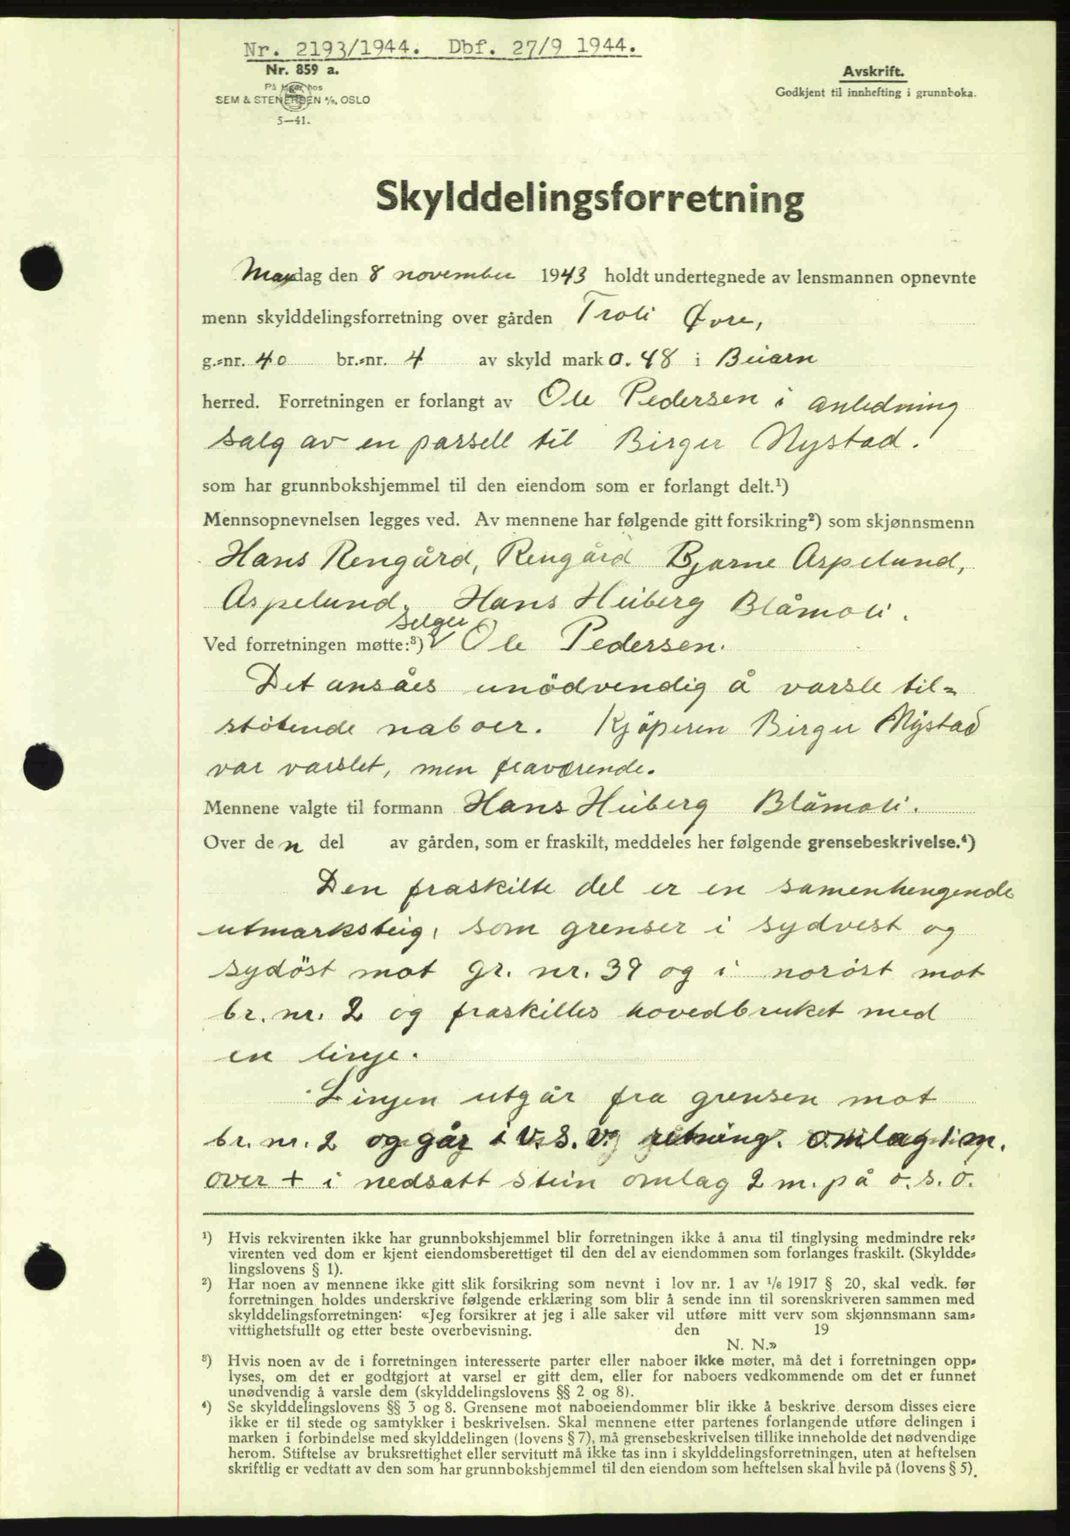 Nr. 2193/1944. Dbf. 27/9 1944.
Nr. 859 a.
På lager hos
SEM & STENERSEN A/S, OSLO
5—41.
Avskrift.
Godkjent til innhefting i grunnboka.
Skylddelingsforretning
Mandag den 8 november 1943 holdt undertegnede av lensmannen opnevnte
menn skylddelingsforretning over gården Troli Øvre,
g.-nr. 40 br.-nr. 4 av skyld mark 0.48 i Beiarn
herred. Forretningen er forlangt av Ole Pedersen i anledning
salg av en parsell til Birger Nystad.
som har grunnbokshjemmel til den eiendom som er forlangt delt.¹)
Mennsopnevnelsen legges ved. Av mennene har følgende gitt forsikring²) som skjønnsmenn
Hans Rengård, Rengård Bjarne Aspelund,
Aspelund, Hans Heiberg Blåmoli.
selger
Ved forretningen møtte:³) Ole Pedersen.
Det ansåes unödvendig å varsle til=
stötende naboer. Kjöperen Birger Nystad
var varslet, men fraværende.
Mennene valgte til formann Hans Heiberg Blåmoli.
Over den del av gården, som er fraskilt, meddeles her følgende grensebeskrivelse.⁴)
Den fraskilte del er en samenhengende
utmarksteig, som grenser i sydvest og
sydöst mot gr. nr. 39 og i noröst mot
br. nr. 2 og fraskilles hovedbruket med
en linje.
Linjen utgår fra grensen mot
br. nr. 2 og går i V.S.V. retning. omlag 1 m.
over + i nedsatt stein omlag 2 m. på ö.s.ö.
¹) Hvis rekvirenten ikke har grunnbokshjemmel blir forretningen ikke å anta til tinglysing medmindre rek-
virenten ved dom er kjent eiendomsberettiget til den del av eiendommen som forlanges fraskilt. (Skyldde-
lingslovens § 1).
²) Har noen av mennene ikke gitt slik forsikring som nevnt i lov nr. 1 av 1/6 1917 § 20, skal vedk. før
forretningen holdes underskrive følgende erklæring som blir å sende inn til sorenskriveren sammen med
skylddelingsforretningen: «Jeg forsikrer at jeg i alle saker vil utføre mitt verv som skjønnsmann sam-
vittighetsfullt og etter beste overbevisning. den 19
N. N.»
³) Hvis noen av de i forretningen interesserte parter eller naboer ikke møter, må det i forretningen opp-
lyses, om det er godtgjort at varsel er gitt dem, eller for naboers vedkommende om det er funnet
unødvendig å varsle dem (skylddelingslovens §§ 2 og 8).
⁴) Se skylddelingslovens §§ 3 og 8. Grensene mot naboeiendommer blir ikke å beskrive dersom disses eiere
ikke er til stede og samtykker i beskrivelsen. Skal mennene etter partenes forlangende utføre delingen i
marken i forbindelse med skylddelingen (lovens § 7), må grensebeskrivelsen tillike inneholde det nødvendige
herom. Stiftelse av bruksrettighet eller servitutt må ikke tas inn i skylddelingsforretningen, uten at heftelsen
skriftlig er vedtatt av den som har grunnbokshjemmel til den eiendom som heftelsen skal hvile på (lovens § 5).